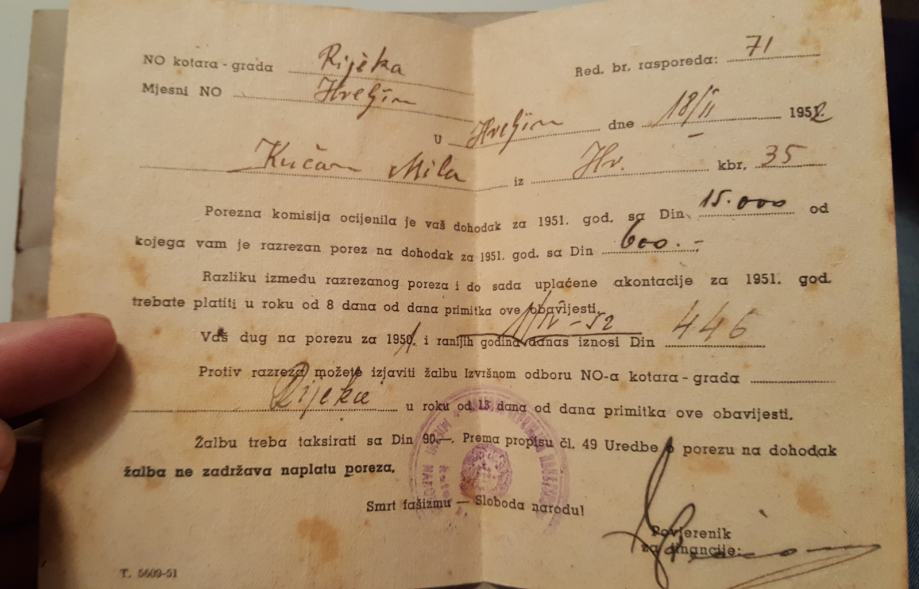 NO kotara-grada Rijeka Red. br. rasporeda: 71
Mjesni NO Hreljin
U Hreljin dne 18/II 1952
Kučan Mila iz Hr. kbr. 35
Porezna komisija ocijenila je vaš dohodak za 1951. god. sa Din 15.000 od
kojega vam je razrezan porez na dohodak za 1951. god. sa Din 600.-
Razliku između razrezanog poreza i do sada uplaćene akontacije za 1951. god.
trebate platiti u roku od 8 dana od dana primitka ove obavijesti.
Vaš dug na porezu za 1951. i ranijih godina danas iznosi Din 446
Protiv razreza možete izjaviti žalbu Izvršnom odboru NO-a kotara-grada
Rijeka u roku od 15 dana od dana primitka ove obavijesti.
Žalbu treba taksirati sa Din 90.—. Prema propisu čl. 49 Uredbe o porezu na dohodak
žalba ne zadržava naplatu poreza.
Smrt fašizmu — Sloboda narodu!
Povjerenik
za financije:
T. 5609-51